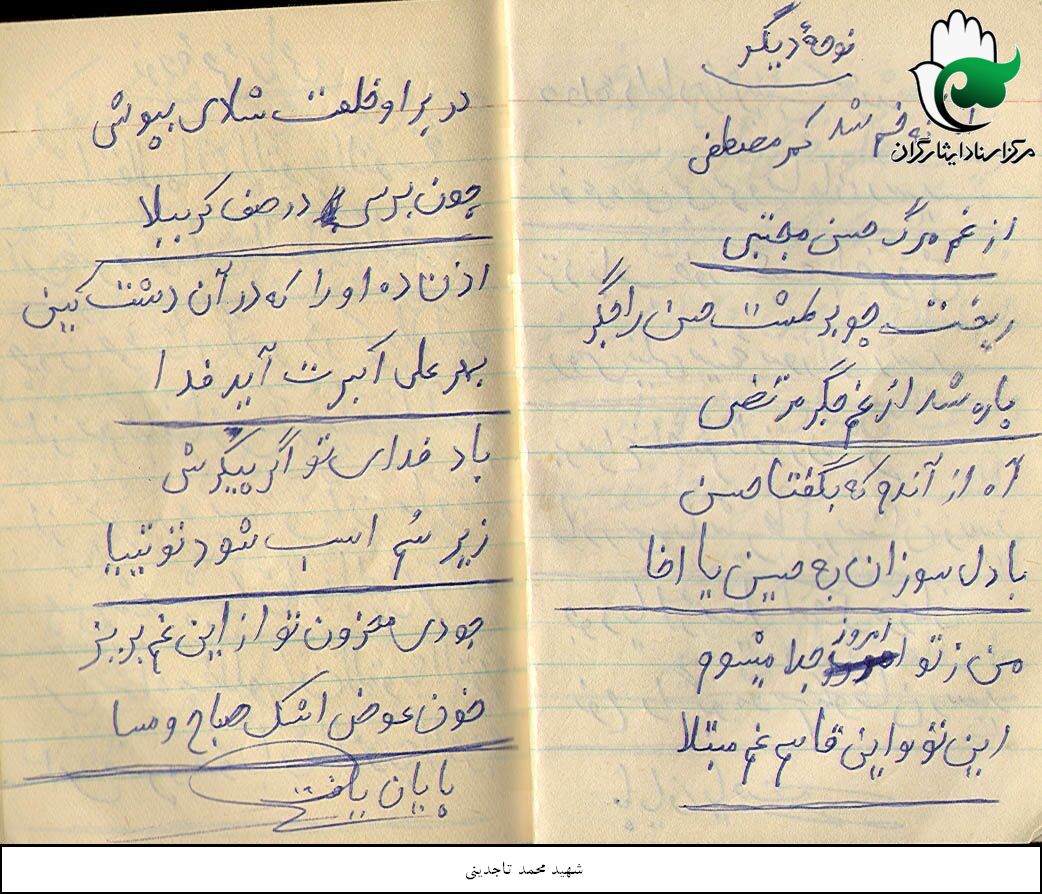 نوحهٔ دیگر
خم شد کمر مصطفی
مرکز اسناد ایثارگران
از غم مرگ حسن مجتبی
ریخت چو بر طشت حسن را جگر
پاره شد از غم جگر مرتضی
آه از آندم که بگفتا حسن
با دل سوزان به حسین یا اخا
من ز تو امروز جدا میشوم
این تو و این قاسم غم مبتلا
در بر او خلعت شادی بپوش
چون برسی در صف کربلا
اذن ده او را که در آن دشت کین
بهر علی اکبرت آید فدا
باد فدای تو اگر پیکرش
زیر سُم اسب شود توتیا
جودی محزون تو از این غم بریز
خون عوض اشک صباح و مسا
پایان یافت
شهید محمد تاجدینی